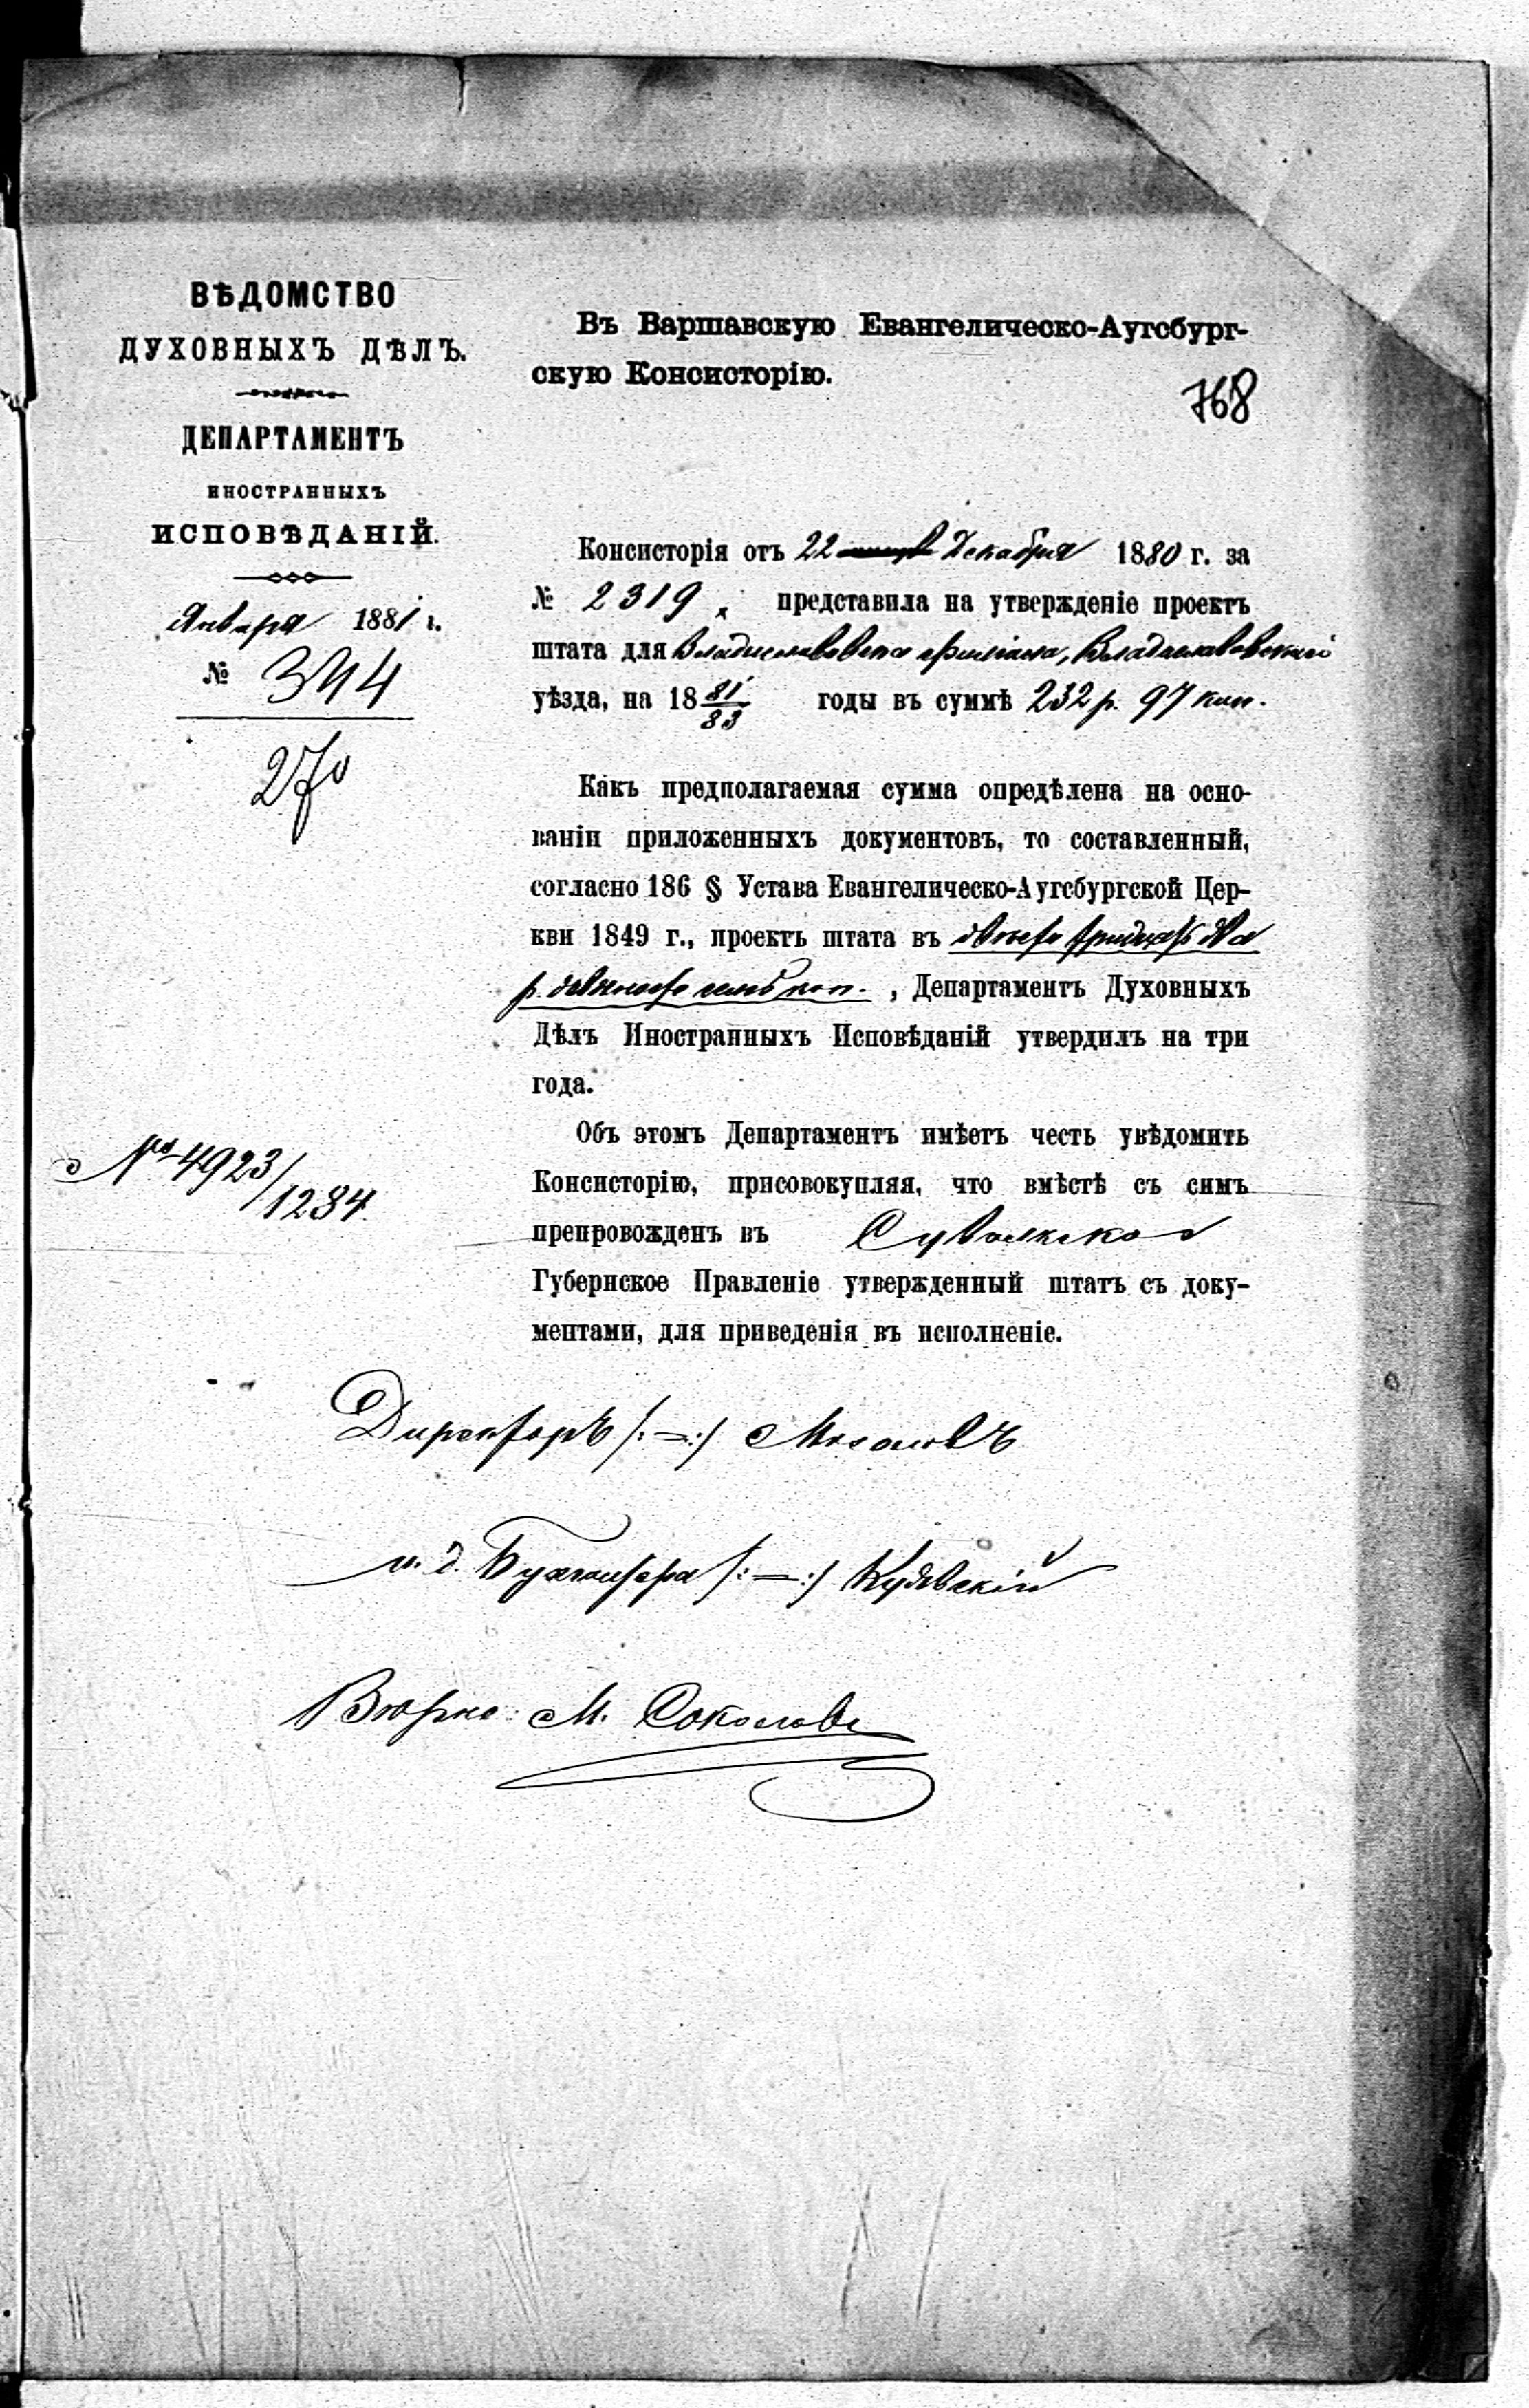 ВѢДОМСТВО
ДУХОВНЫХЪ ДѢЛЪ.
ДЕПАРТАМЕНТЪ
ИНОСТРАННЫХЪ
ИСПОВѢДАНІЙ.
Января 1881 г.
№ 344
270
№ 4923/1284
Въ Варшавскую Евангелическо-Аугсбург-
скую Консисторію.
768
Консисторія отъ 22 Декабря 1880 г. за
№ 2319, представила на утвержденіе проектъ
штата для Владиславовска филіала, Владиславовскаго
уѣзда, на 18 81/83 годы въ суммѣ 232 р. 97 коп.
Какъ предполагаемая сумма опредѣлена на осно-
ваніи приложенныхъ документовъ, то составленный,
согласно 186 § Устава Евангелическо-Аугсбургской Цер-
кви 1849 г., проектъ штата въ двѣсти тридцать два
р. девяносто семь коп., Департаментъ Духовныхъ
Дѣлъ Иностранныхъ Исповѣданій утвердилъ на три
года.
Объ этомъ Департаментъ имѣетъ честь увѣдомить
Консисторію, присовокупляя, что вмѣстѣ съ симъ
препровожденъ въ Сувалкское
Губернское Правленіе утвержденный штатъ съ доку-
ментами, для приведенія въ исполненіе.
Директоръ /:—:/ Мосоловъ
и. д. Бухгалтера /:—:/ Куявскій
Вѣрно: М. Соколовъ